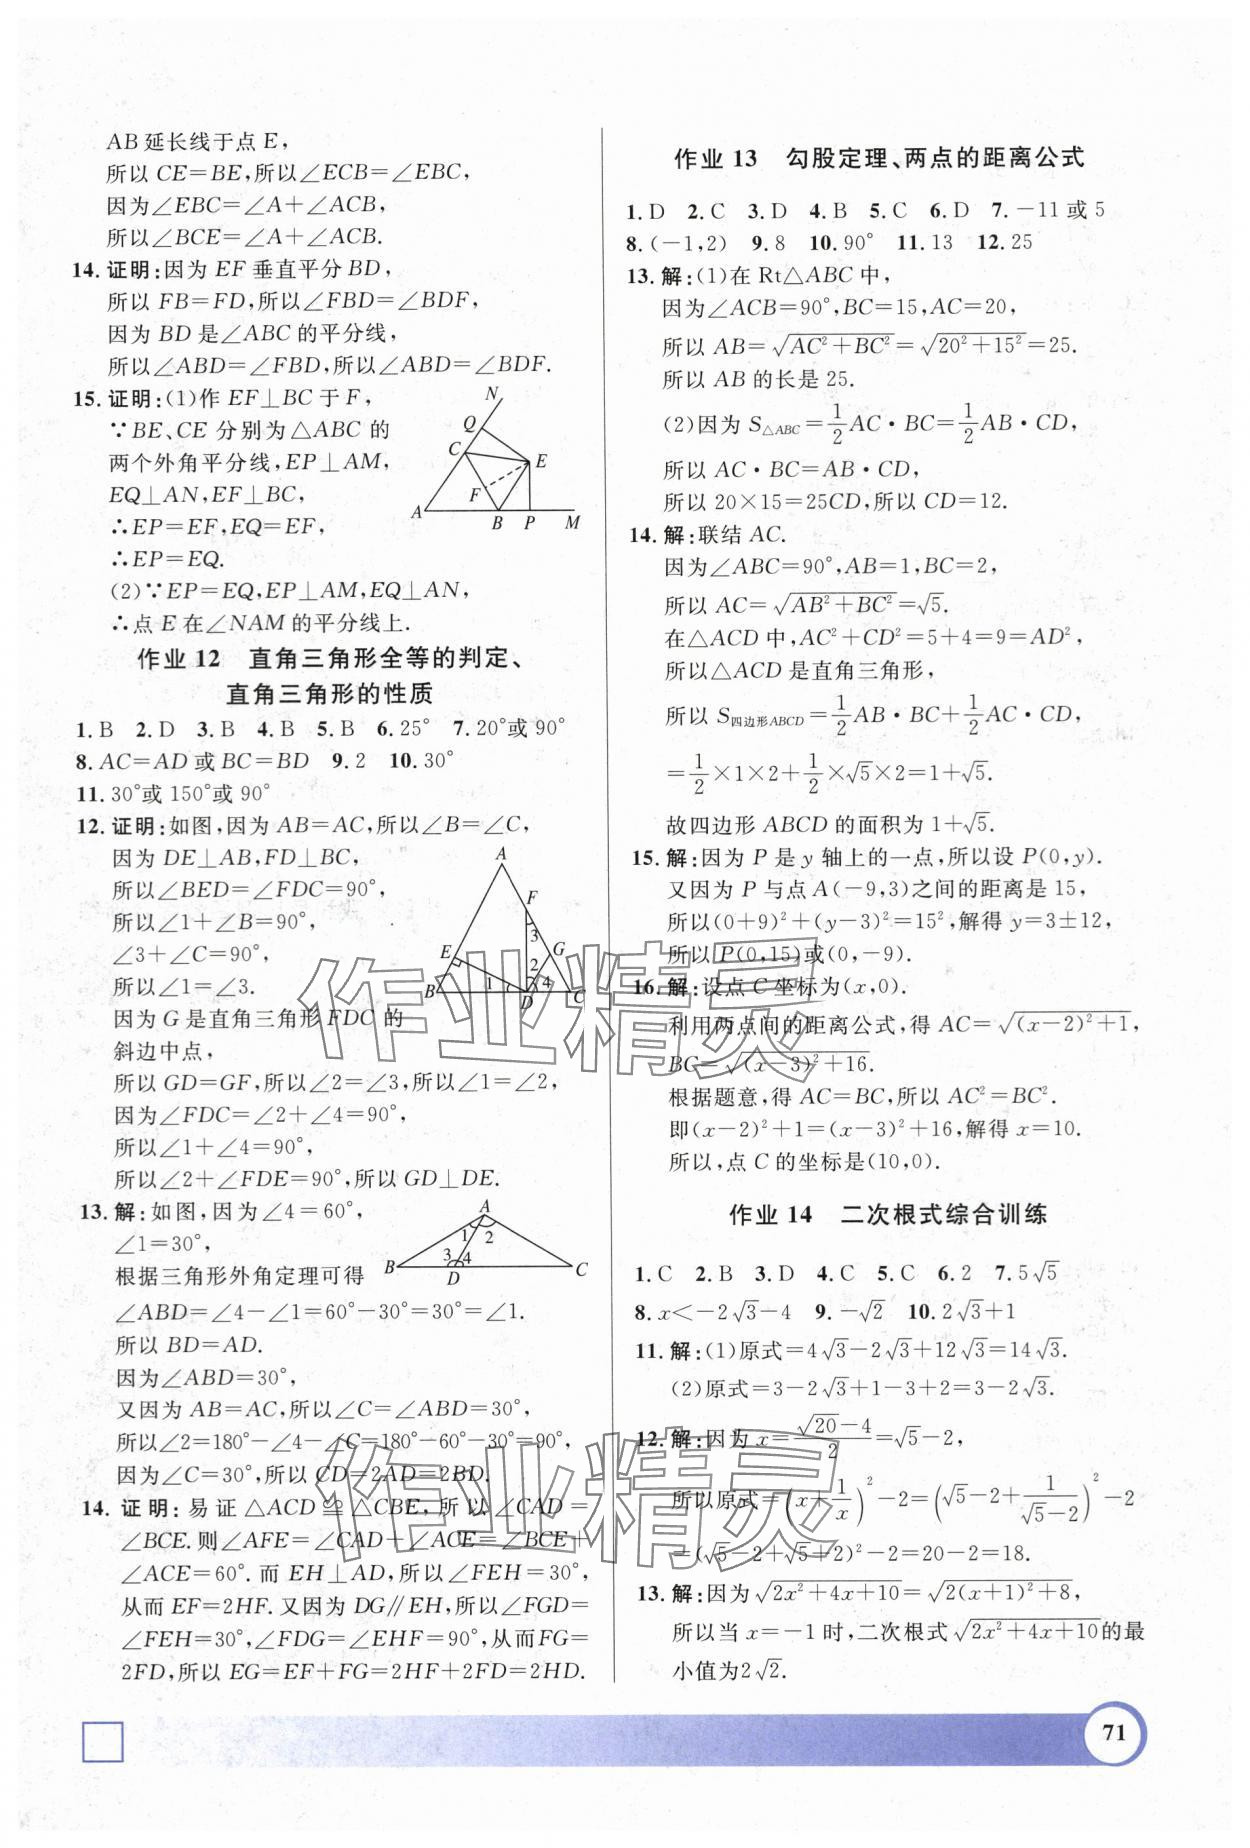 AB延长线于点E,
所以CE=BE,所以∠ECB=∠EBC,
因为∠EBC=∠A+∠ACB,
所以∠BCE=∠A+∠ACB.
14.证明:因为EF垂直平分BD,
所以FB=FD,所以∠FBD=∠BDF,
因为BD是∠ABC的平分线,
所以∠ABD=∠FBD,所以∠ABD=∠BDF.
15.证明:(1)作EF⊥BC于F,
∵BE、CE分别为△ABC的
两个外角平分线,EP⊥AM,
EQ⊥AN,EF⊥BC,
∴EP=EF,EQ=EF,
∴EP=EQ.
N
Q
C
E
F
A
B P M
(2)∵EP=EQ,EP⊥AM,EQ⊥AN,
∴点E在∠NAM的平分线上.
作业12 直角三角形全等的判定、
直角三角形的性质
1.B 2.D 3.B 4.B 5.B 6.25° 7.20°或90°
8.AC=AD或BC=BD 9.2 10.30°
11.30°或150°或90°
12.证明:如图,因为AB=AC,所以∠B=∠C,
因为DE⊥AB,FD⊥BC,
所以∠BED=∠FDC=90°,
所以∠1+∠B=90°,
∠3+∠C=90°,
所以∠1=∠3.
因为G是直角三角形FDC的
斜边中点,
A
F
3
E G
2
1 4
B D C
所以GD=GF,所以∠2=∠3,所以∠1=∠2,
因为∠FDC=∠2+∠4=90°,
所以∠1+∠4=90°,
所以∠2+∠FDE=90°,所以GD⊥DE.
13.解:如图,因为∠4=60°,
∠1=30°,
根据三角形外角定理可得
A
1 2
3 4
B D C
∠ABD=∠4-∠1=60°-30°=30°=∠1.
所以BD=AD.
因为∠ABD=30°,
又因为AB=AC,所以∠C=∠ABD=30°,
所以∠2=180°-∠4-∠C=180°-60°-30°=90°,
因为∠C=30°,所以CD=2AD=2BD.
14.证明:易证△ACD≌△CBE,所以∠CAD=
∠BCE.则∠AFE=∠CAD+∠ACE=∠BCE+
∠ACE=60°.而EH⊥AD,所以∠FEH=30°,
从而EF=2HF.又因为DG∥EH,所以∠FGD=
∠FEH=30°,∠FDG=∠EHF=90°,从而FG=
2FD,所以EG=EF+FG=2HF+2FD=2HD.
作业13 勾股定理、两点的距离公式
1.D 2.C 3.D 4.B 5.C 6.D 7.-11或5
8.(-1,2) 9.8 10.90° 11.13 12.25
13.解:(1)在Rt△ABC中,
因为∠ACB=90°,BC=15,AC=20,
所以AB=√(AC²+BC²)=√(20²+15²)=25.
所以AB的长是25.
(2)因为S△ABC=1/2AC·BC=1/2AB·CD,
所以AC·BC=AB·CD,
所以20×15=25CD,所以CD=12.
14.解:联结AC.
因为∠ABC=90°,AB=1,BC=2,
所以AC=√(AB²+BC²)=√5.
在△ACD中,AC²+CD²=5+4=9=AD²,
所以△ACD是直角三角形,
所以S四边形ABCD=1/2AB·BC+1/2AC·CD,
=1/2×1×2+1/2×√5×2=1+√5.
故四边形ABCD的面积为1+√5.
15.解:因为P是y轴上的一点,所以设P(0,y).
又因为P与点A(-9,3)之间的距离是15,
所以(0+9)²+(y-3)²=15²,解得y=3±12,
所以P(0,15)或(0,-9).
16.解:设点C坐标为(x,0).
利用两点间的距离公式,得AC=√((x-2)²+1),
BC=√((x-3)²+16).
根据题意,得AC=BC,所以AC²=BC².
即(x-2)²+1=(x-3)²+16,解得x=10.
所以,点C的坐标是(10,0).
作业14 二次根式综合训练
1.C 2.B 3.D 4.C 5.C 6.2 7.5√5
8.x<-2√3-4 9.-√2 10.2√3+1
11.解:(1)原式=4√3-2√3+12√3=14√3.
(2)原式=3-2√3+1-3+2=3-2√3.
12.解:因为x=(√20-4)/2=√5-2,
所以原式=(x+1/x)²-2=(√5-2+1/(√5-2))²-2
=(√5-2+√5+2)²-2=20-2=18.
13.解:因为√(2x²+4x+10)=√(2(x+1)²+8),
所以当x=-1时,二次根式√(2x²+4x+10)的最
小值为2√2.
作业精灵
作业精灵
71